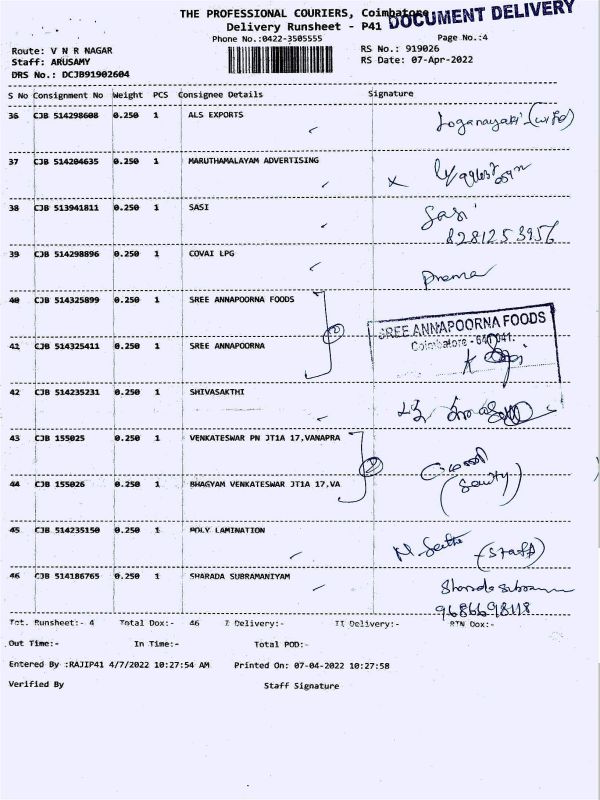 THE PROFESSIONAL COURIERS, Coimbatore
DOCUMENT DELIVERY
Delivery Runsheet - P41
Phone No.:0422-3505555
Page No.:4
Route: V N R NAGAR
RS No.: 919026
Staff: ARUSAMY
RS Date: 07-Apr-2022
DRS No.: DCJB91902604
S No Consignment No Weight PCS Consignee Details Signature
36 CJB 514298608 0.250 1 ALS EXPORTS Loganayaki (wife)
37 CJB 514204635 0.250 1 MARUTHAMALAYAM ADVERTISING
38 CJB 513941811 0.250 1 SASI Sasi
8281253956
39 CJB 514298896 0.250 1 COVAI LPG Prema
40 CJB 514325899 0.250 1 SREE ANNAPOORNA FOODS
SREE ANNAPOORNA FOODS
Coimbatore - 641041.
41 CJB 514325411 0.250 1 SREE ANNAPOORNA
42 CJB 514235231 0.250 1 SHIVASAKTHI
43 CJB 155025 0.250 1 VENKATESWAR PN JT1A 17,VANAPRA
44 CJB 155026 0.250 1 BHAGYAM VENKATESWAR JT1A 17,VA
45 CJB 514235150 0.250 1 POLY LAMINATION (Staff)
46 CJB 514186765 0.250 1 SHARADA SUBRAMANIYAM
9686698118
Tot. Runsheet:- 4 Total Dox:- 46 I Delivery:- II Delivery:- RTN Dox:-
Out Time:- In Time:- Total POD:-
Entered By :RAJIP41 4/7/2022 10:27:54 AM Printed On: 07-04-2022 10:27:58
Verified By Staff Signature